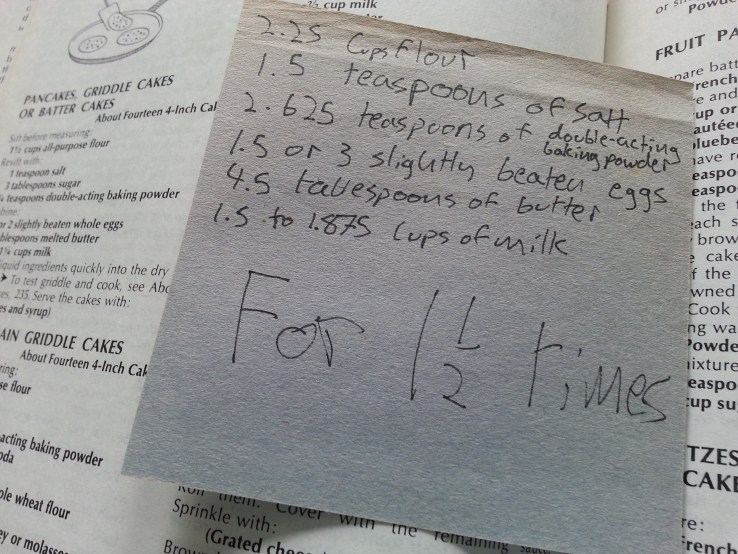 ½ cup milk
PANCAKES, GRIDDLE CAKES
OR BATTER CAKES
About Fourteen 4-Inch Cal
Sift before measuring:
1½ cups all-purpose flour
Resift with:
1 teaspoon salt
3 tablespoons sugar
teaspoons double-acting baking powder
bine:
or 2 slightly beaten whole eggs
blespoons melted butter
1¼ cups milk
iquid ingredients quickly into the dry
To test griddle and cook, see Abo
es, 235. Serve the cakes with:
es and syrup)
AIN GRIDDLE CAKES
About Fourteen 4-Inch Cak
ring:
se flour
acting baking powder
oda
ole wheat flour
ey or molasse
2.25 Cups flour
1.5 teaspoons of salt
2.625 teaspoons of double-acting
baking powder
1.5 or 3 slightly beaten eggs
4.5 tablespoons of butter
1.5 to 1.875 Cups of milk
For 1 1/2 times
Roll them. Cover with the remaining sauce
Sprinkle with:
(Grated chee
Brow
FRUIT PA
pare batt
French
e and
cup or
autée
bluebe
have r
easpo
easpo
the f
each s
brow
cake
f the
wned
Cook
ng wa
Powde
ixture
easpo
cup su
TZES
CAKE
re:
French